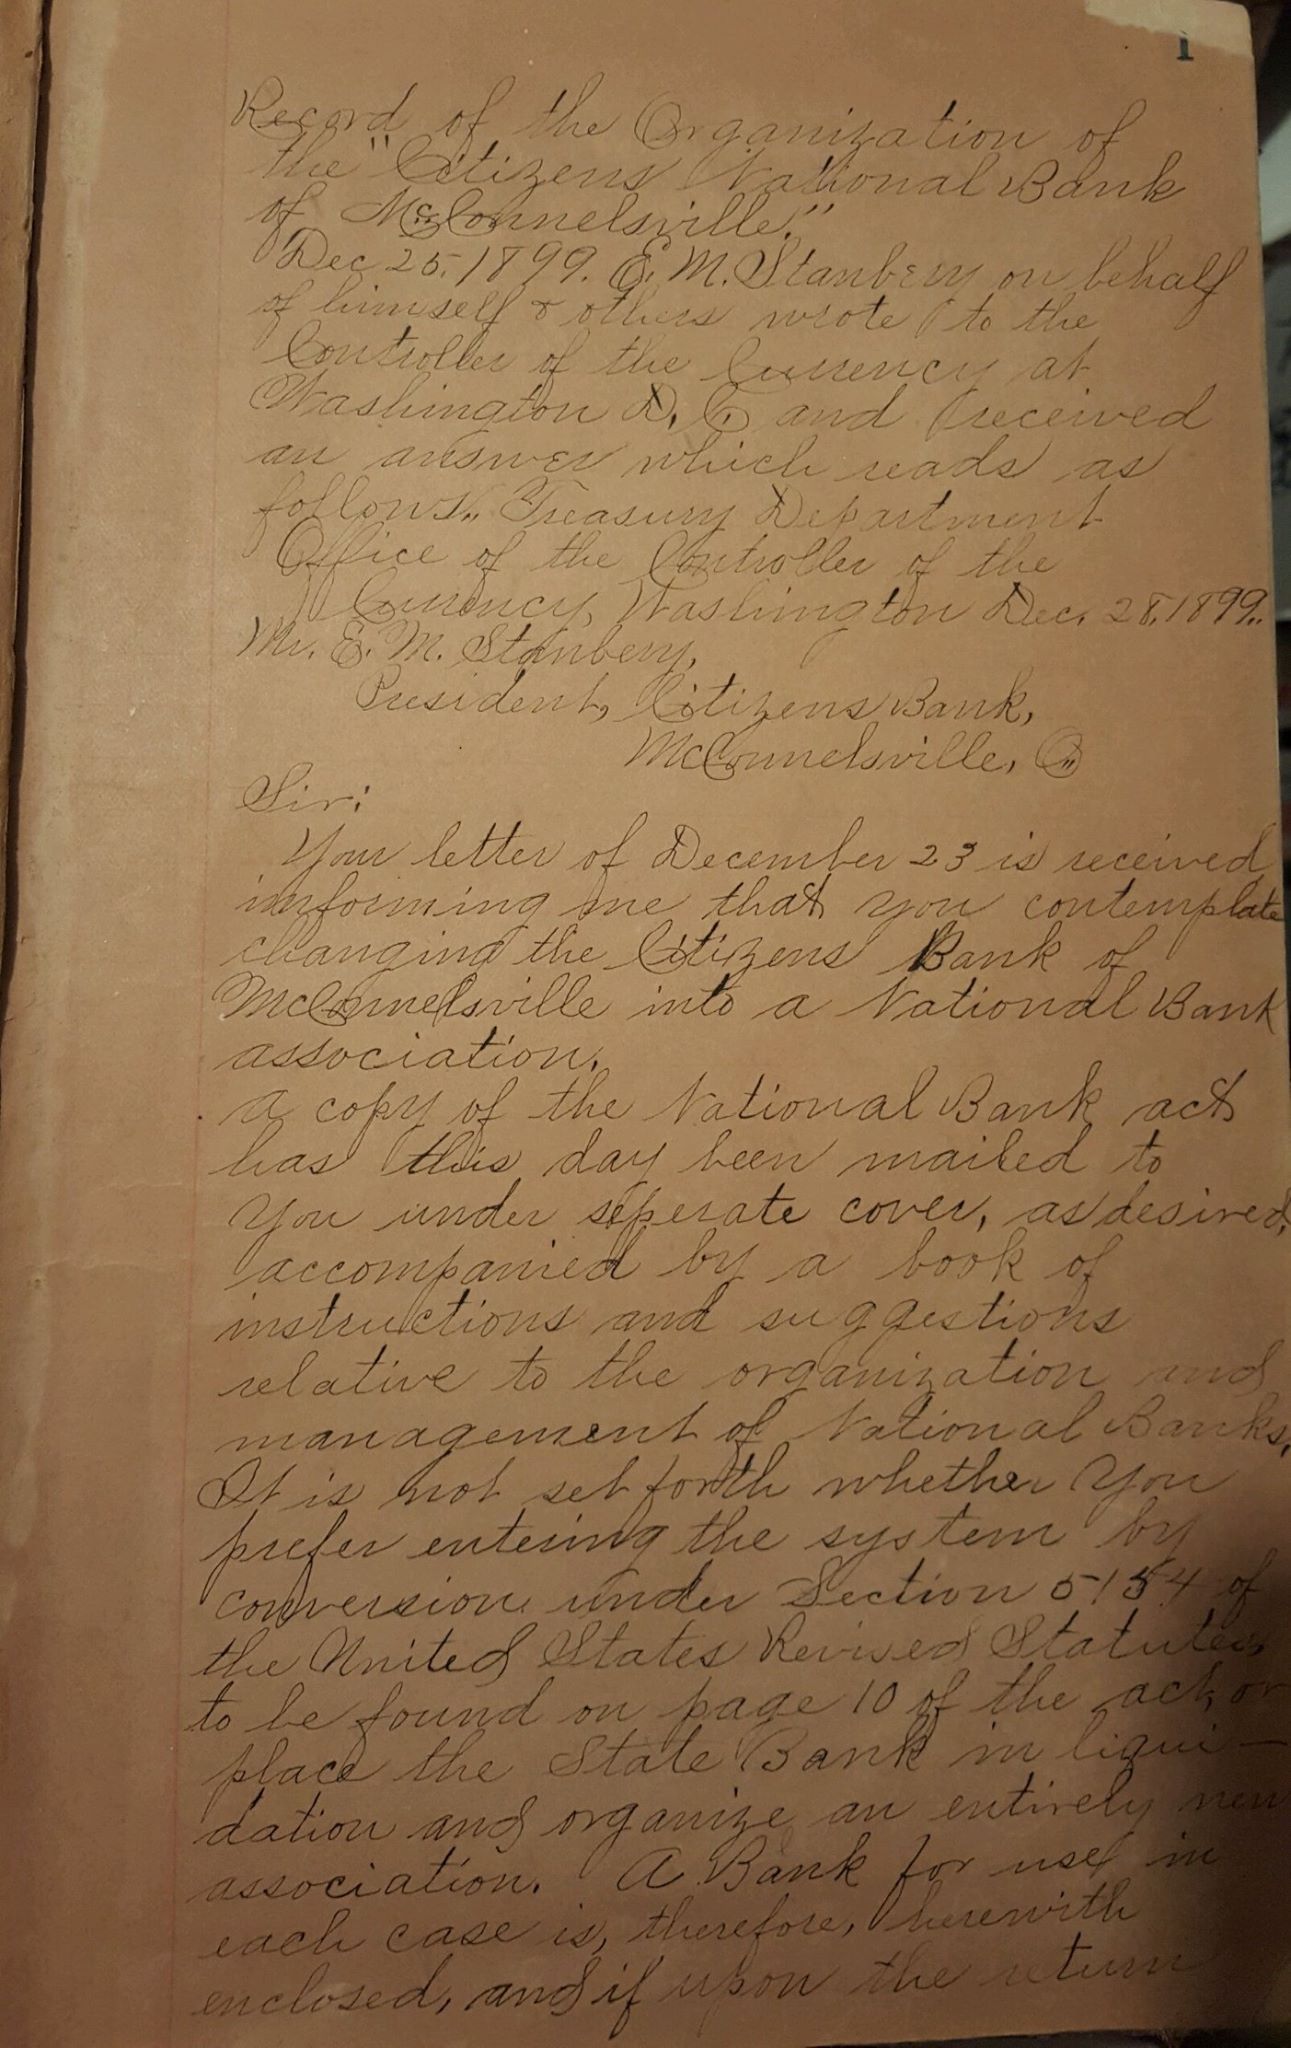 1
Record of the Organization of
the "Citizens National Bank
of McConnelsville."
Dec 25, 1899. E. M. Stanbery on behalf
of himself & others wrote to the
Controller of the Currency at
Washington D. C. and received
an answer which reads as
follows„ Treasury Department
Office of the Controller of the
Currency, Washington Dec. 28, 1899„
Mr. E. M. Stanbery,
President, Citizens Bank,
McConnelsville, O„
Sir:
Your letter of December 23 is received
informing me that you contemplate
changing the Citizens Bank of
McConnelsville into a National Bank
association.
A copy of the National Bank act
has this day been mailed to
you under seperate cover, as desired,
accompanied by a book of
instructions and suggestions
relative to the organization and
management of National Banks.
It is not set forth whether you
prefer entering the system by
conversion under Section 5154 of
the United States Revised Statutes,
to be found on page 10 of the act, or
place the State Bank in liqui-
dation and organize an entirely new
association. A Bank for use in
each case is, therefore, herewith
enclosed, and if upon the return